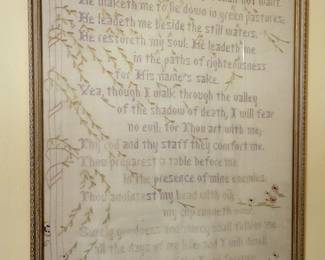 shall not want.
He maketh me to lie down in green pastures:
He leadeth me beside the still waters.
He restoreth my soul: He leadeth me
in the paths of righteousness
for His name's sake.
Yea, though I walk through the valley
of the shadow of death, I will fear
no evil: for Thou art with me;
Thy rod and thy staff they comfort me.
Thou preparest a table before me
in the presence of mine enemies:
Thou anointest my head with oil;
my cup runneth over.
Surely goodness and mercy shall follow me
all the days of my life: and I will dwell